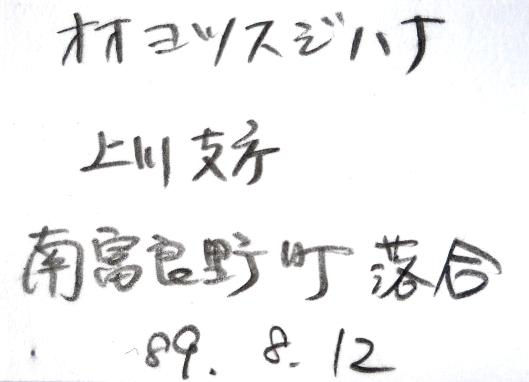 オオヨツスジハナ
上川支庁
南富良野町落合
89. 8. 12